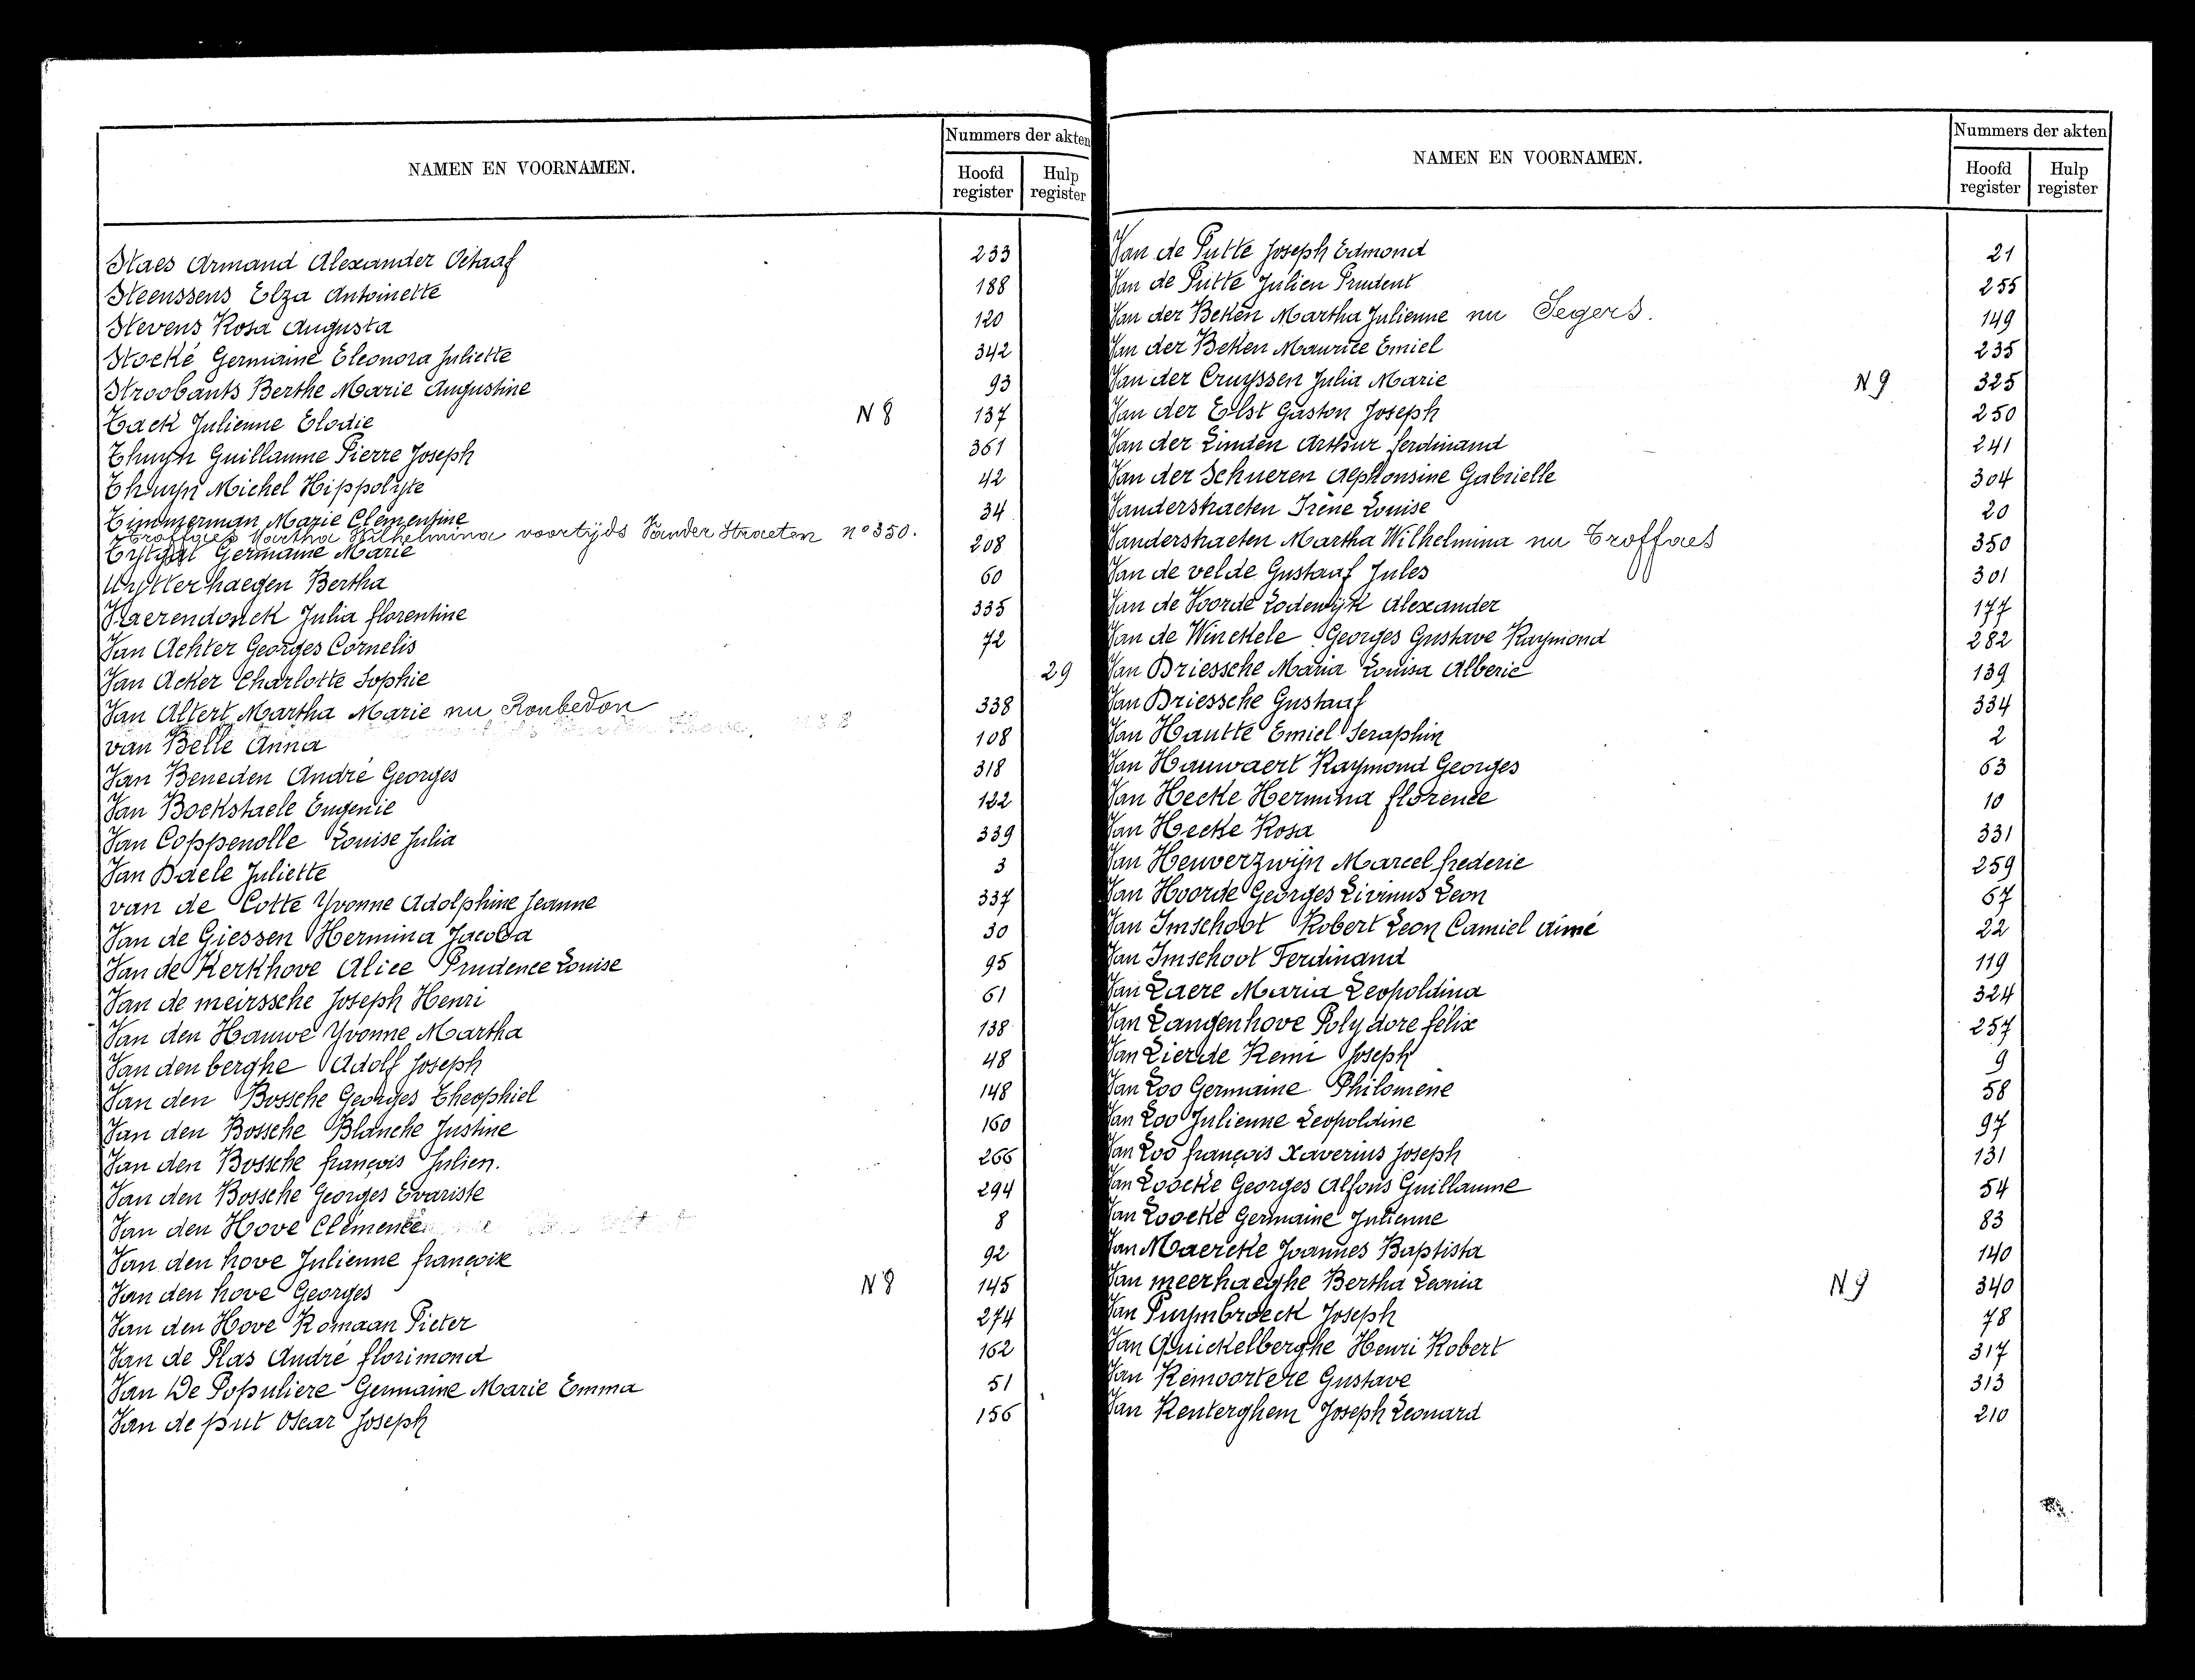 NAMEN EN VOORNAMEN.
Nummers der akten
Hoofd register
Hulp register
Staes Armand Alexander Octaaf 233
Steenssens Elza Antoinette 188
Stevens Rosa Augusta 120
Stocké Germaine Eleonora Juliette 342
Stroobants Berthe Marie Augustine 93
Tack Julienne Elodie N 8 137
Thuyn Guillaume Pierre Joseph 361
Thuyn Michel Hippolyte 42
Timmerman Marie Clementine 34
Troffaes Martha Wilhelmina voortijds Vander Straeten n° 350.
Tytgat Germaine Marie 208
Uytterhaegen Bertha 60
Vaerendonck Julia florentine 335
Van Achter Georges Cornelis 72
Van Acker Charlotte Sophie 29
Van Altert Martha Marie nu Roubedon 338
van Belle Anna 108
Van Beneden André Georges 318
Van Bockstaele Eugenie 122
Van Coppenolle Louise Julia 339
Van Daele Juliette 3
van de Cotte Yvonne Adolphine Jeanne 337
Van de Giessen Hermina Jacoba 30
Van de Kerkhove Alice Prudence Louise 95
Van de meirssche Joseph Henri 61
Van den Hauwe Yvonne Martha 138
Van den berghe Adolf Joseph 48
Van den Bossche Georges Theophiel 148
Van den Bossche Blanche Justine 160
Van den Bossche françois Julien. 266
Van den Bossche Georges Evariste 294
Van den Hove Clemence 8
Van den hove Julienne 92
Van den hove Georges N 8 145
Van den Hove Romaan Pieter 274
Van de Plas André florimond 162
Van De Populiere Germaine Marie Emma 51
Van de put Oscar Joseph 156
NAMEN EN VOORNAMEN.
Nummers der akten
Hoofd register
Hulp register
Van de Putte Joseph Edmond 21
Van de Putte Julien Prudent 255
Van der Beken Martha Julienne nu Segers. 149
Van der Beken Maurice Emiel 235
Van der Cruyssen Julia Marie N 9 325
Van der Elst Gaston Joseph 250
Van der Linden Arthur ferdinand 241
Van der Schueren Alphonsine Gabrielle 304
Vanderstraeten Irène Louise 20
Vanderstraeten Martha Wilhelmina nu Troffaes 350
Van de velde Gustaaf Jules 301
Van de Voorde Lodewijk Alexander 177
Van de Winckele Georges Gustave Raymond 282
Van Driessche Maria Louisa Alberic 139
Van Driessche Gustaaf 334
Van Hautte Emiel Seraphin 2
Van Hauwaert Raymond Georges 63
Van Hecke Hermina florence 10
Van Hecke Rosa 331
Van Heuverzwijn Marcel frederic 259
Van Hoorde Georges Livinus Leon 67
Van Imschoot Robert Leon Camiel Aimé 22
Van Imschoot Ferdinand 119
Van Laere Maria Leopoldina 324
Van Langenhove Polydore félix 257
Van Lierde Remi Joseph 9
Van Loo Germaine Philomene 58
Van Loo Julienne Leopoldine 97
Van Loo françois Xaverius Joseph 131
Van Loocke Georges Alfons Guillaume 54
Van Loocke Germaine Julienne 83
Van Maercke Joannes Baptista 140
Van meerhaeghe Bertha Leonia N 9 340
Van Puymbroeck Joseph 78
Van Quickelberghe Henri Robert 317
Van Remoortere Gustave 313
Van Renterghem Joseph Leonard 210